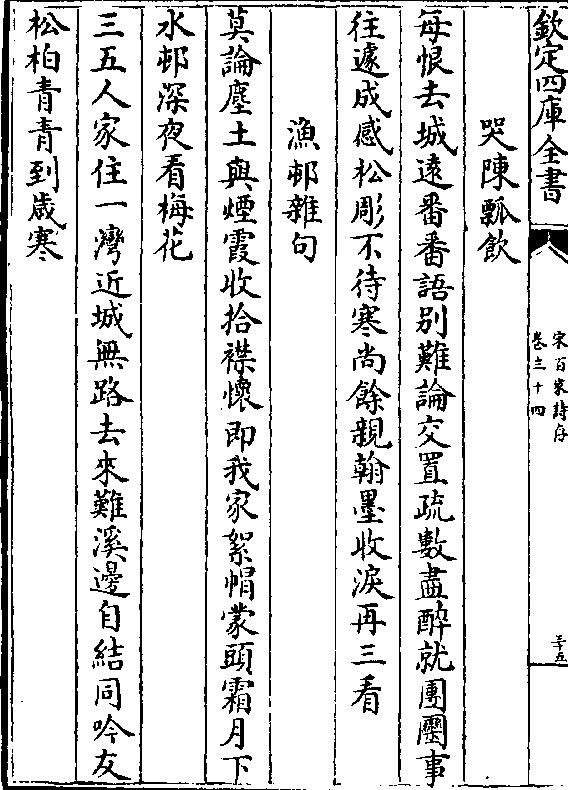 欽定四庫全書
宋百家詩存
卷三十四
三十五
哭陳瓢飲
每恨去城遠番番語別難論交置疏數盡醉就團圞事
往遽成感松彫不待寒尚餘親翰墨收淚再三看
漁邨雜句
莫論塵土與煙霞收拾襟懷即我家絮帽蒙頭霜月下
水邨深夜看梅花
三五人家住一灣近城無路去來難溪邊自結同吟友
松柏青青到歲寒